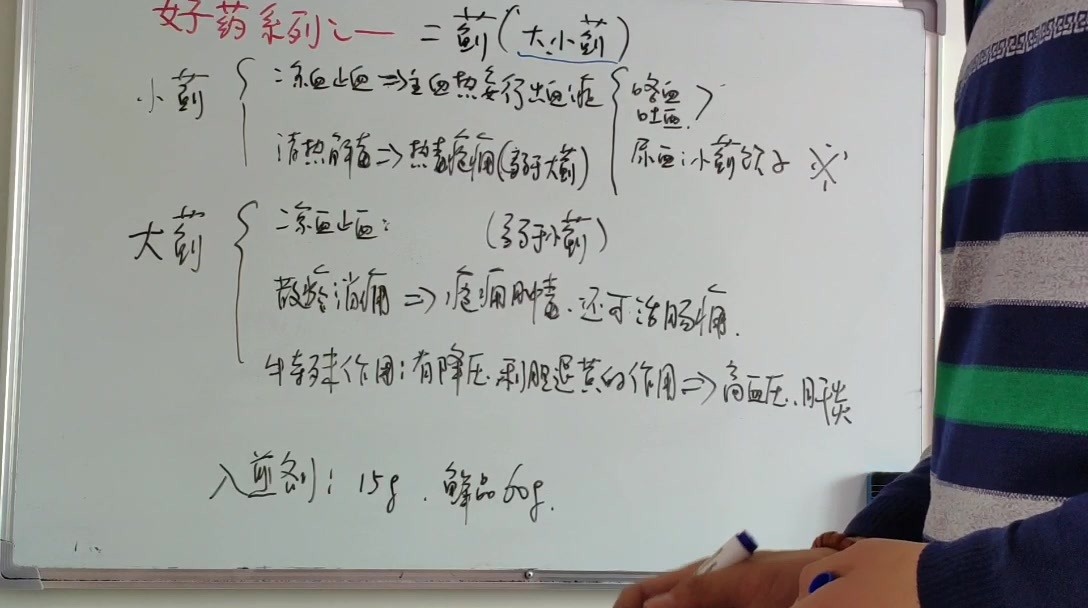 好药系列之一 二蓟(大.小蓟)
小蓟 凉血止血⇒主血热妄行出血症 咯血
吐血.
清热解毒⇒热毒疮痈(弱于大蓟) 尿血:小蓟饮子 ※
大蓟 凉血止血: (弱于小蓟)
散瘀消痈⇒疮痈肿毒.还可治肠痈.
特殊作用:有降压.利胆退黄的作用⇒高血压.肝炎
入煎剂: 15g. 鲜品60g.